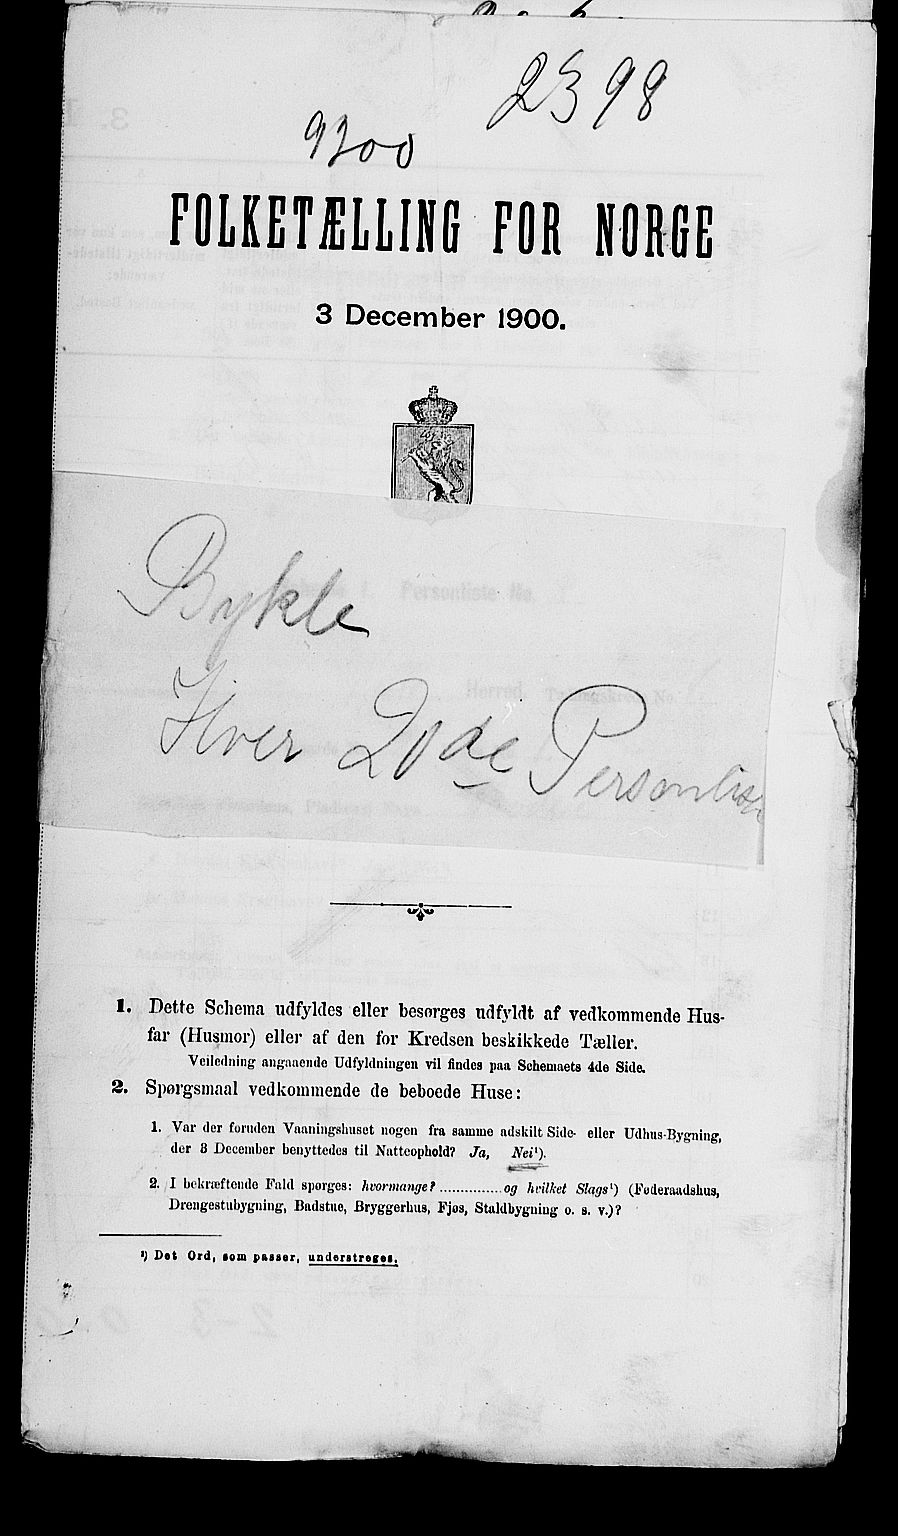 2398
9300
FOLKETÆLLING FOR NORGE
3 December 1900.
Bykle
Hver 20de Personliste
1. Dette Schema udfyldes eller besørges udfyldt af vedkommende Hus-
far (Husmor) eller af den for Kredsen beskikkede Tæller.
Veiledning angaaende Udfyldningen vil findes paa Schemaets 4de Side.
2. Spørgsmaal vedkommende de beboede Huse:
1. Var der foruden Vaaningshuset nogen fra samme adskilt Side- eller Udhus-Bygning,
der 3 December benyttedes til Natteophold? Ja, Nei¹).
2. I bekræftende Fald spørges: hvormange? ............... og hvilket Slags¹) (Føderaadshus,
Drengestubygning, Badstue, Bryggerhus, Fjøs, Staldbygning o. s. v.)?
¹) Det Ord, som passer, understreges.